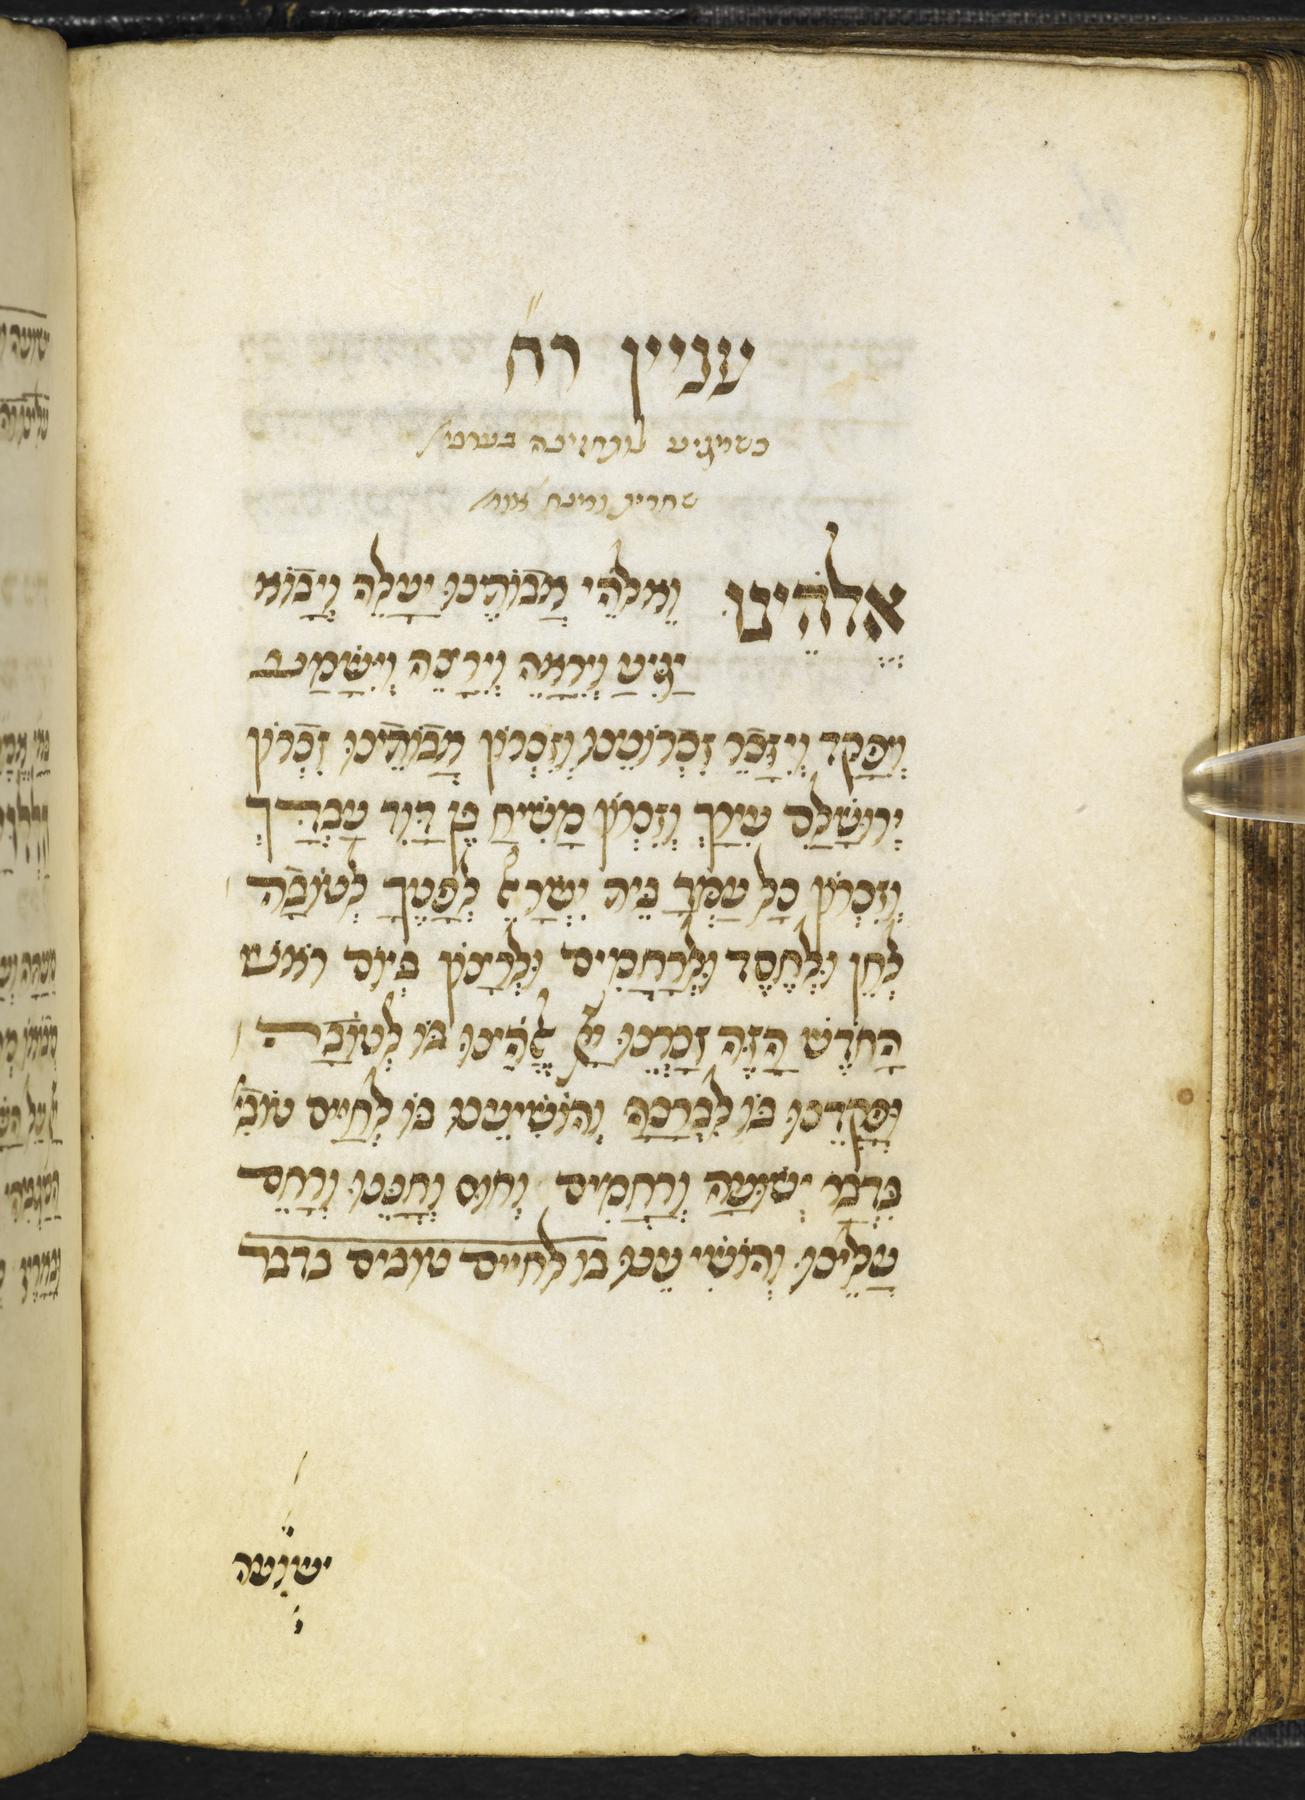 עניין רח
כשיגיע לעבודה בערבי
שחרית ומנח אומ'
אֱלֹהֵינוּ וֵאלֹהֵי אֲבוֹתֵינוּ יַעֲלֶה וְיָבוֹא
יַגִּיעַ וְיֵרָאֶה וְיֵרָצֶה וְיִשָּׁמַע
וְיִפָּקֵד וְיִזָּכֵר זִכְרוֹנֵינוּ וְזִכְרוֹן אֲבוֹתֵינוּ זִכְרוֹן
יְרוּשָׁלַיִם עִירָךְ וְזִכְרוֹן מָשִׁיחַ בֶּן דָּוִד עַבְדָּךְ
וְזִכְרוֹן כָּל עַמְּךָ בֵּית יִשְׂרָאֵל לְפָנֶיךָ לְטוֹבָה
לְחֵן וּלְחֶסֶד וּלְרַחֲמִים וּלְרָצוֹן בְּיוֹם רֹאשׁ
הַחֹדֶשׁ הַזֶּה זָכְרֵנוּ יְיָ אֱלֹהֵינוּ בּוֹ לְטוֹבָה
וּפָקְדֵנוּ בּוֹ לִבְרָכָה וְהוֹשִׁיעֵנוּ בּוֹ לְחַיִּים טוֹבִי'
בִּדְבַר יְשׁוּעָה וְרַחֲמִים וְחוּס וְחָנֵּנוּ וְרַחֵם
עָלֵינוּ וְהוֹשִׁיעֵנוּ בו לחיים טובים בדבר
ישועה